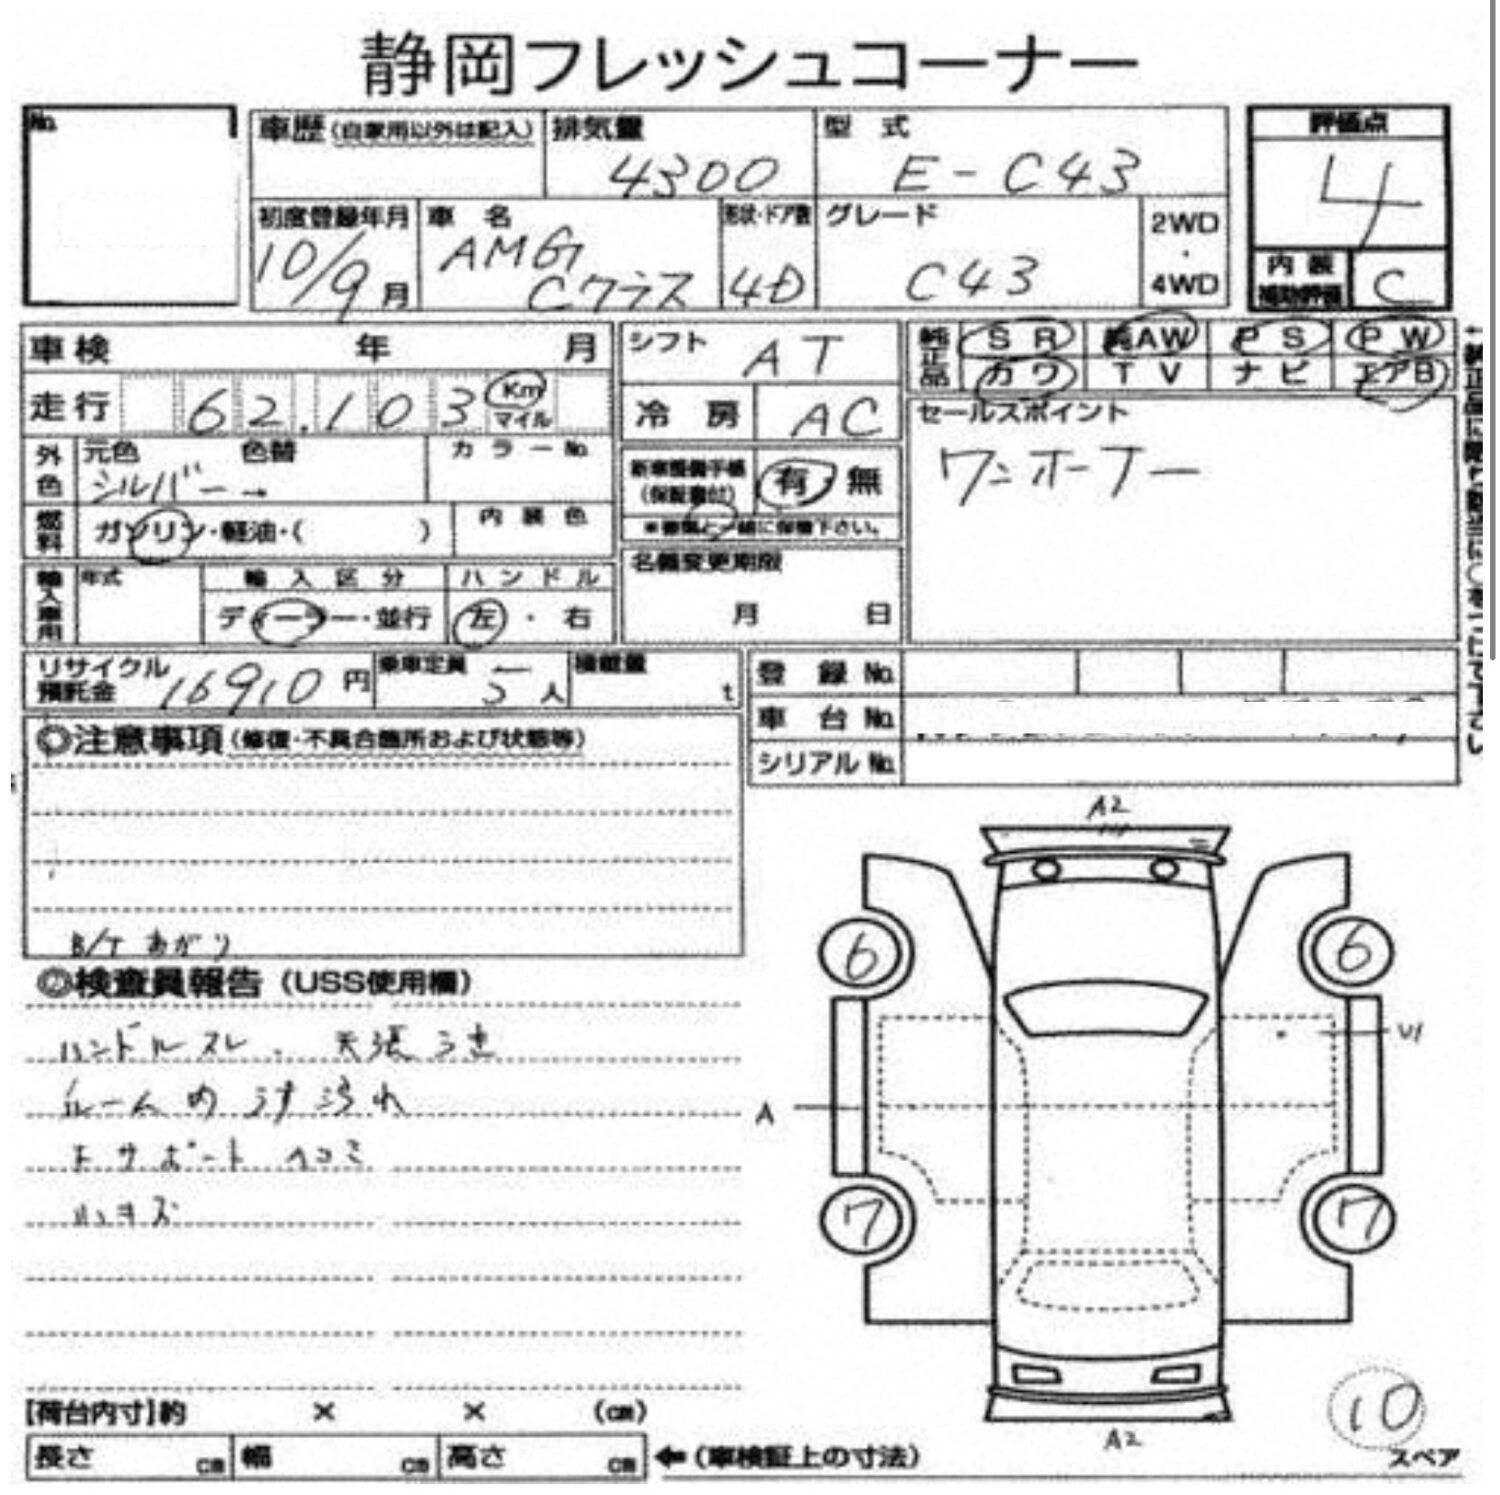 静岡フレッシュコーナー
No.
車歴(自家用以外は記入)
排気量
4300
型式
E-C43
評価点
4
初度登録年月
10/9月
車名
AMG
Cクラス
形状・ドア数
4D
グレード
C43
2WD
・
4WD
内装
補助評価
C
車検 年 月
シフト AT
純正品
SR 純AW PS PW
カワ TV ナビ エアB
走行 62,103 Km
マイル
冷房 AC
セールスポイント
ワンオーナー
外色
元色 色替
シルバー→
カラーNo.
新車整備手帳
(保証書付)
有・無
燃料
ガソリン・軽油・( )
内装色
名義変更期限
月 日
輸入車用
年式
輸入区分
ディーラー・並行
ハンドル
左・右
リサイクル
預託金 16910円
乗車定員 5人
積載量 t
登録No.
車台No.
シリアルNo.
◎注意事項(修復・不具合箇所および状態等)
B/Tあがり
◎検査員報告(USS使用欄)
ハンドルスレ. 天張うき
ルーム内うす汚れ
下サポートヘコミ
小キズ
A2
6
6
U1
A
7
7
A2
10
スペア
[荷台内寸]約 × × (cm)
長さ cm 幅 cm 高さ cm ←(車検証上の寸法)